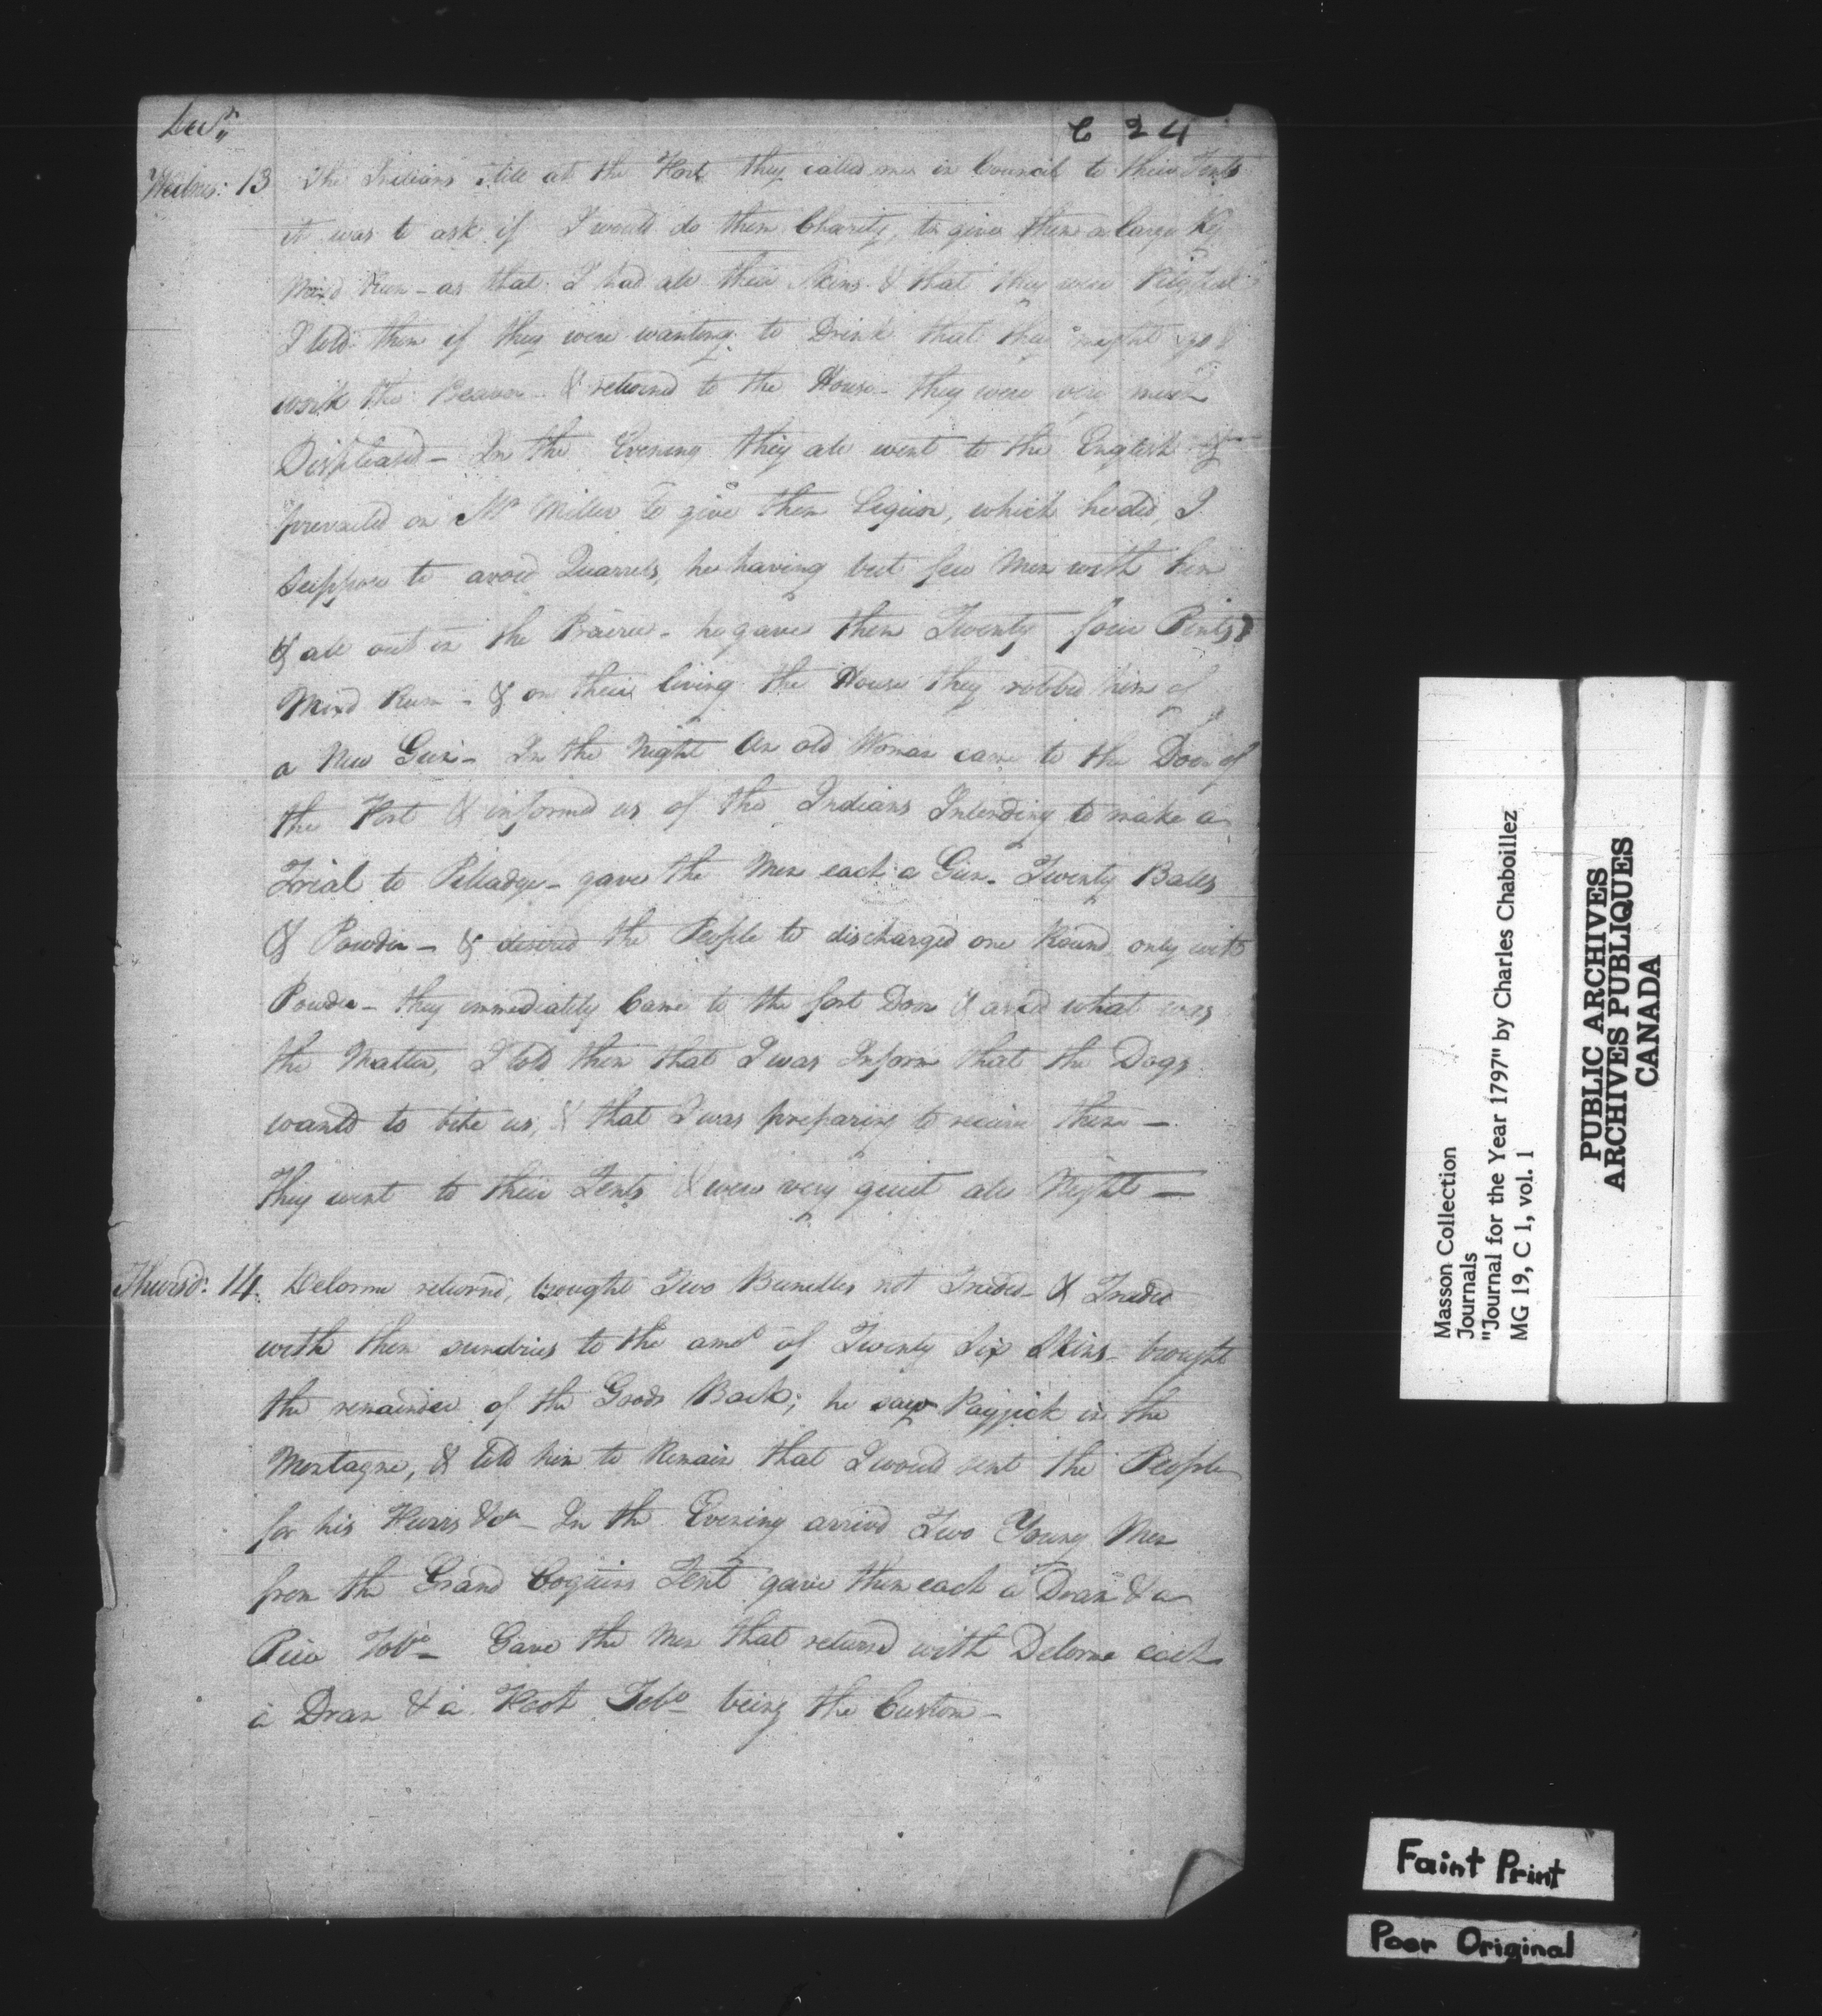 Decr
C 24
Wednes: 13 The Indians still at the Fort they called me in Council to their Tents
it was to ask if I would do them Charity, to give them a large Keg
Mixd Rum - as that I had all their Skins & that they were Pityfull
I told them if they were wanting to Drink that they might go &
work the Beaver - & returnd to the House - they were very much
Displeased - In the Evening they all went to the English &
prevailed on Mr Miller to give them Liquor, which he did, I
suppose to avoid Quarrels, he having but few Men with him
& all out in the Prairie - he gave them Twenty four Pints
Mixd Rum - & on their living the House they robbed him of
a New Gun - In the Night An old Woman came to the Door of
the Fort & informd us of the Indians Intending to make a
Trial to Pilladge - gave the Men each a Gun - Twenty Balls
& Powder - & desired the People to discharged one Round only with
Powder - they immediatly Came to the fort Door & askd what was
the Matter, I told them that I was Inform that the Dogs
wantd to bite us, & that I was preparing to receive them -
They went to their Tents & were very quiet all Night -
Thursd: 14. Delorme returnd, brought Two Bundles not Traded - & Traded
with them sundries to the amt of Twenty Six Skins - brought
the remainder of the Goods Back; he saw Payjick in the
Montagne, & told him to Remain that I would sent the People
for his Furrs &ca - In the Evening arrivd Two Young Men
from the Grand Coquins Tent gave them each a Dram & a
Piece Tobo - Gave the Men that returnd with Delorme each
a Dram & a Foot Tobo - being the Custom -
Masson Collection
Journals
"Journal for the Year 1797" by Charles Chaboillez
MG 19, C 1, vol. 1
PUBLIC ARCHIVES
ARCHIVES PUBLIQUES
CANADA
Faint Print
Poor Original